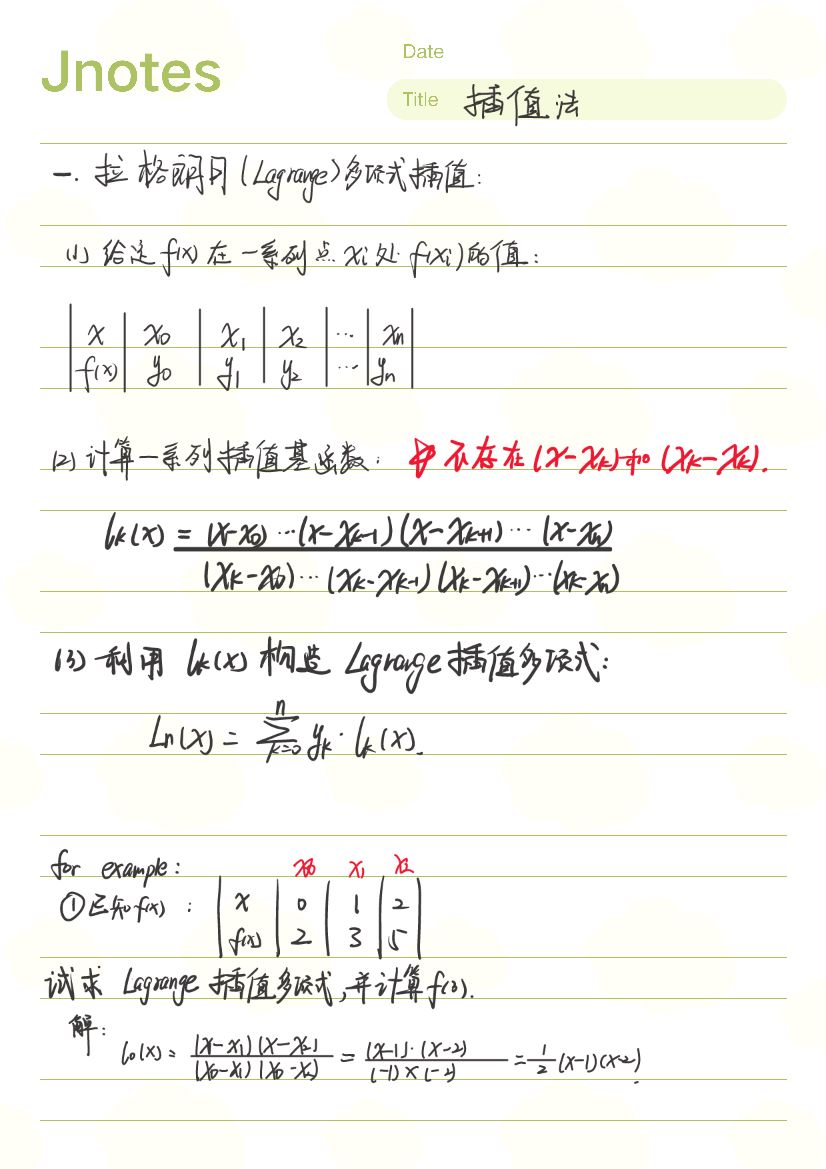 Jnotes
Date
Title 插值法
一. 拉格朗日(Lagrange)多项式插值:
(1) 给定 f(x) 在一系列点 xi 处 f(xi)的值:
x | x0 | x1 | x2 | ... | xn
f(x) | y0 | y1 | y2 | ... | yn
(2) 计算一系列插值基函数: 不存在(x-xk)和(xk-xk).
lk(x) = (x-x0)...(x-xk-1)(x-xk+1)...(x-xn)
(xk-x0)...(xk-xk-1)(xk-xk+1)...(xk-xn)
(3) 利用 lk(x) 构造 Lagrange 插值多项式:
Ln(x) = ∑ n k=0 yk·lk(x).
for example: x0 x1 x2
①已知f(x): x | 0 | 1 | 2
f(x) | 2 | 3 | 5
试求 Lagrange 插值多项式,并计算f(3).
解:
l0(x) = (x-x1)(x-x2) / (x0-x1)(x0-x2) = (x-1)·(x-2) / (-1)×(-2) = 1/2 (x-1)(x-2).